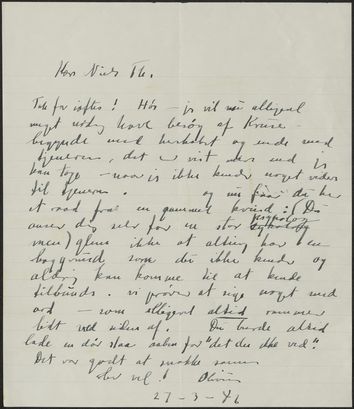 Kære Niels Th.
Tak for iaftes! Hør – jeg vil nu alligevel
meget nødig have besøg af Kruse –
begynde med herbahrt og ende med
tjeneren, det er vist mer end jeg
kan tage – naar jeg ikke kender noget videre
til tjeneren. og nu faar du her
et raad fra en gammel kvind: (Du
anser dig selv for en stor psykolog
men) glem ikke at alting har en
baggrund som du ikke kender og
aldrig kan komme til at kende
tilbunds. vi prøver at sige noget med
ord – som alligevel altid rammer
lidt ved siden af. Du burde altid
lade en dør staa aaben for "det du ikke ved".
Det var godt at snakke sammen
lev vel! Olivia
27 – 3 – 41